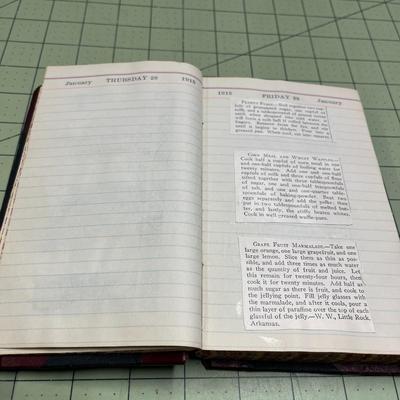 January THURSDAY 28 1915
1915 FRIDAY 29 January
PEANUT FUDGE.—Boil together two cup-
fuls of granulated sugar, one cupful of
milk, and a tablespoonful of
until when dropped into cold water, it
will form a soft ball if rolled between the
fingers. Remove from the fire, and stir
until it begins to thicken. Pour into a
greased pan. When cool, cut into squares
CORN MEAL AND WHEAT WAFFLES.—
Cook half a cupful of corn meal in one
and one-half cupfuls of boiling water for
twenty minutes. Add one and one-half
cupfuls of milk and three cupfuls of flour
sifted together with three tablespoonfuls
of sugar, one and one-half teaspoonfuls
of salt, and one and one-quarter table-
spoonfuls of baking-powder. Beat two
eggs separately and add the yolks; then
put in two tablespoonfuls of melted but-
ter, and lastly, the stiffly beaten whites.
Cook in well greased waffle-pans.
GRAPE FRUIT MARMALADE.—Take one
large orange, one large grapefruit, and one
large lemon. Slice them as thin as pos-
sible, and add three times as much water
as the quantity of fruit and juice. Let
this remain for twenty-four hours, then
cook it for twenty minutes. Add half as
much sugar as there is fruit, and cook to
the jellying point. Fill jelly glasses with
the marmalade, and after it cools, pour a
thin layer of paraffine over the top of each
glassful of the jelly.—W. W., Little Rock,
Arkansas.